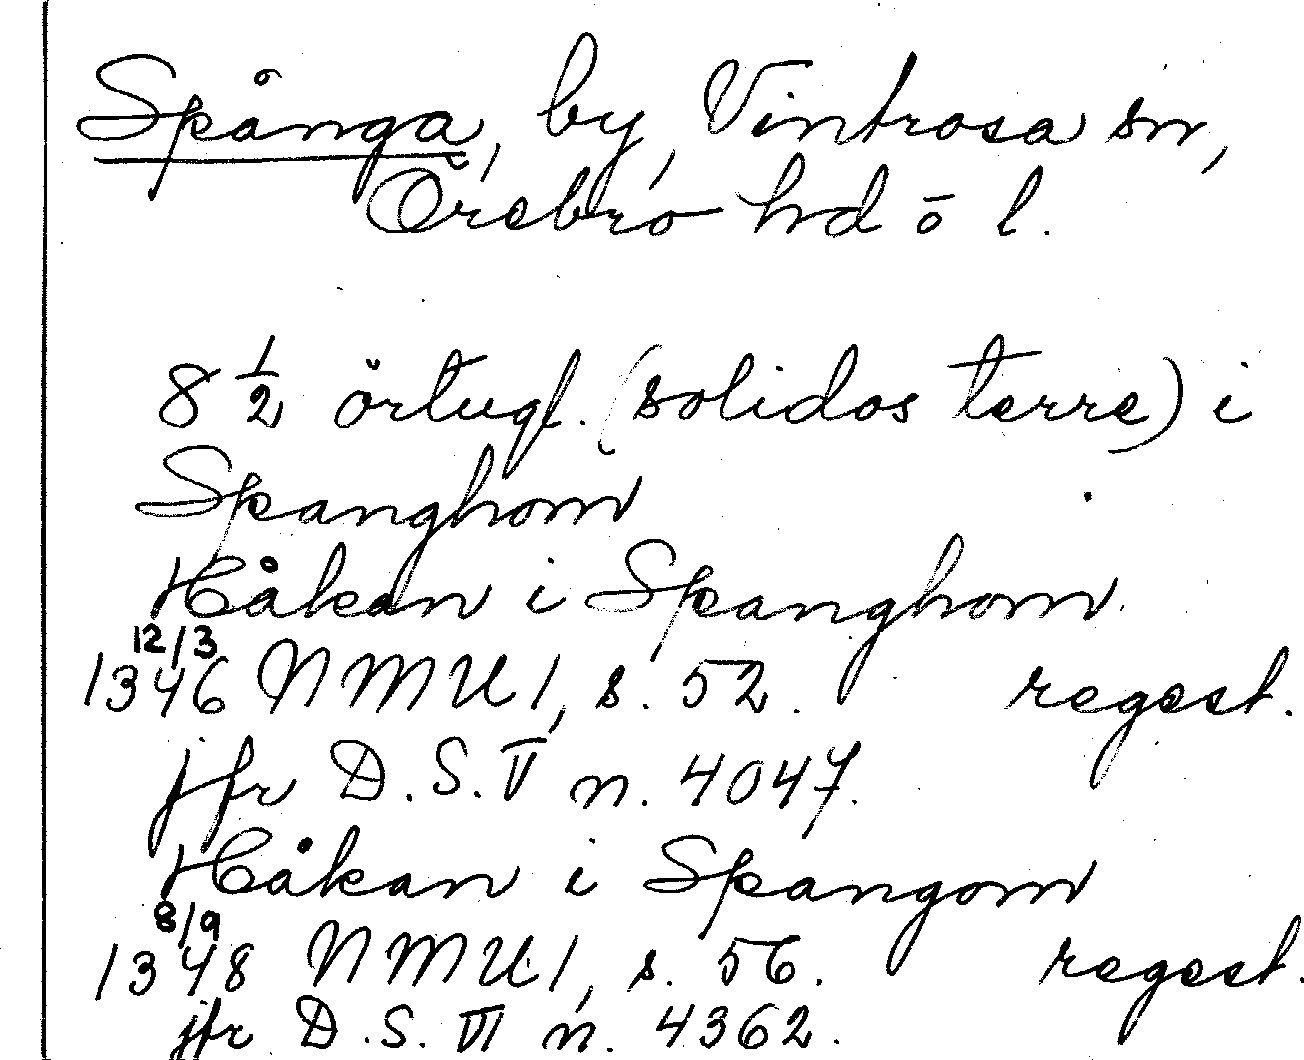 Spånga, by, Vintrosa sn,
Örebro hd ō l.
8 1/2 örtugl. (solidos terre) i
Spanghom
Håkan i Spanghom.
12/3
1346 NMU 1, s. 52. regest.
jfr D.S. V n. 4047.
Håkan i Spangom
8/9
1348 NMU 1, s. 56. regest.
jfr D.S. VI n. 4362.